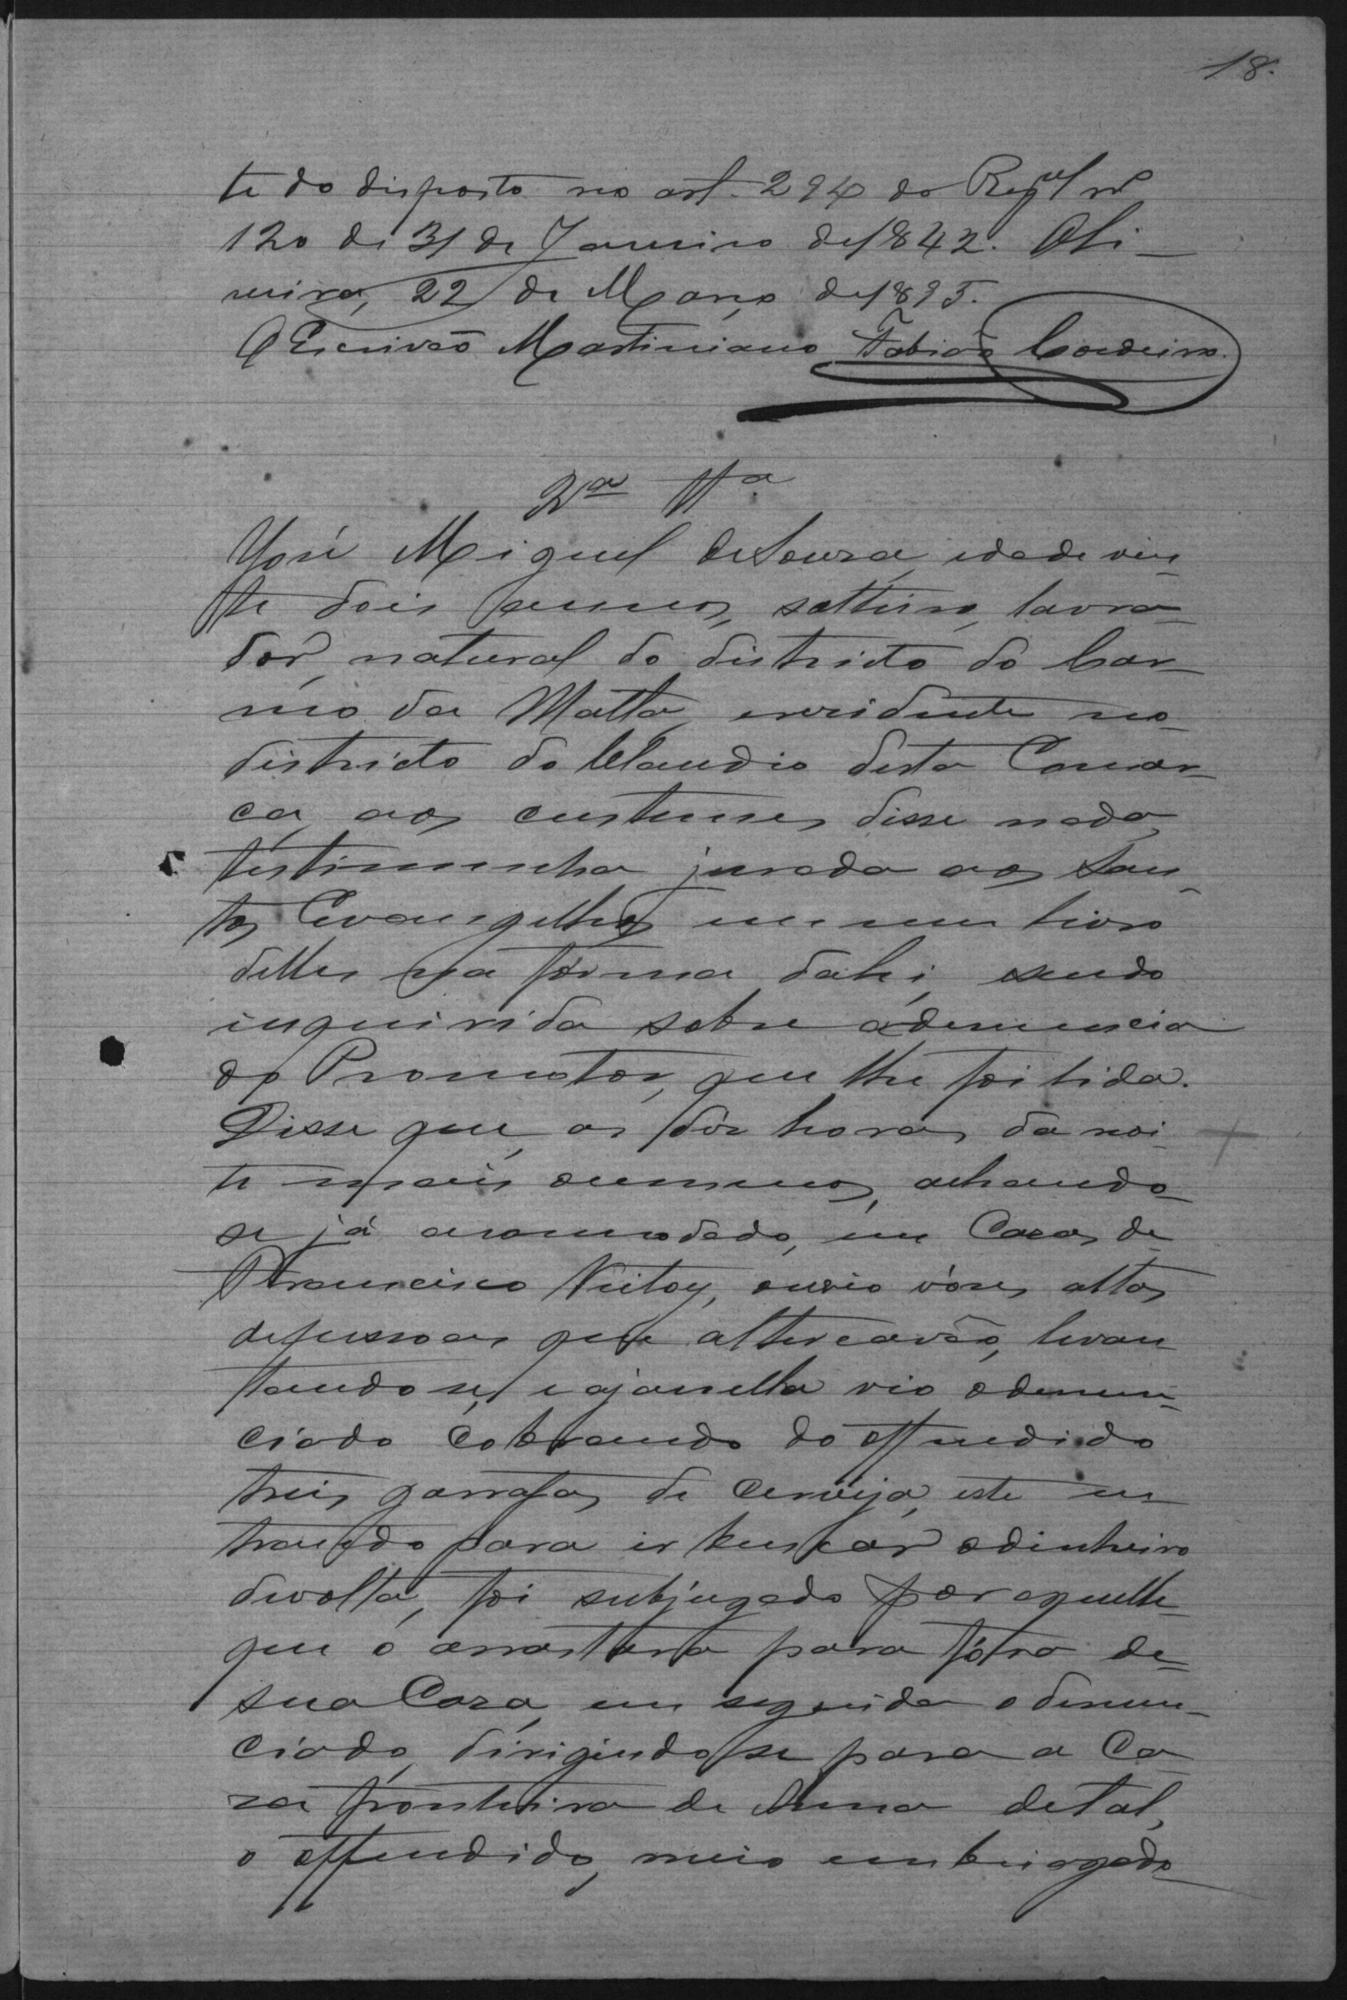 18.
te do disposto no art. 294 do Regul nº
120 de 31 de Janeiro de 1842. Oli-
veira, 22 de Março de 1895.
O Escrivão Martiniano Fabião Cordeiro.
2ª Ttª
José Miguel de Souza, idade vin-
te dois annos, solteiro, lavra-
dor, natural do districto do Car-
mo da Matta, e rezidente no
districto do Claudio desta Comar-
ca, aos custumes disse nada,
testimunha jurada aos San-
tos Evangelhos em um livro
delles na forma dahi, sendo
inquirida sobre a denuncia
do Promotor, que lhe foi lida.
Disse que, as dôz horas da noi-
te mais ou menos, achando-
se já acomodado, em Caza de
Francisco, ouvio vózes altas
de pessoas que altercavão, levan
tando se, e a janella vio o denun-
ciado cobrando do offendido
treis garrafas de cerveija, este en
trando para ir buscar o dinheiro
de volta, foi subjugado por aquelle
que o arrastara para fóra de
sua Caza, em seguida o denun-
ciado, dirigindo se para a Ca-
za fronteira de Anna de tal,
o offendido, meio embriagado